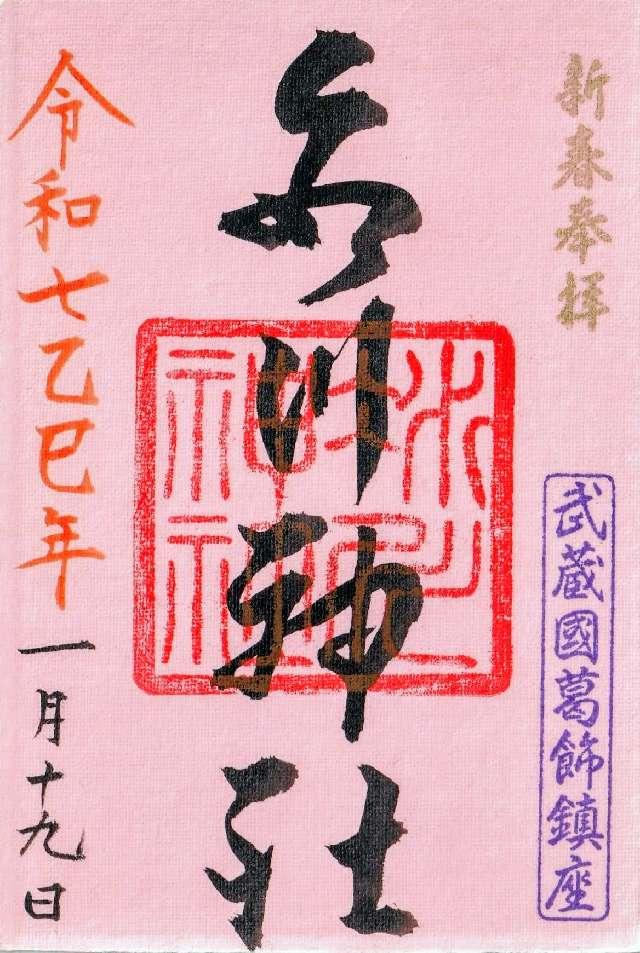 新春奉拝
武蔵國葛飾鎮座
川神社
令和七乙巳年一月十九日